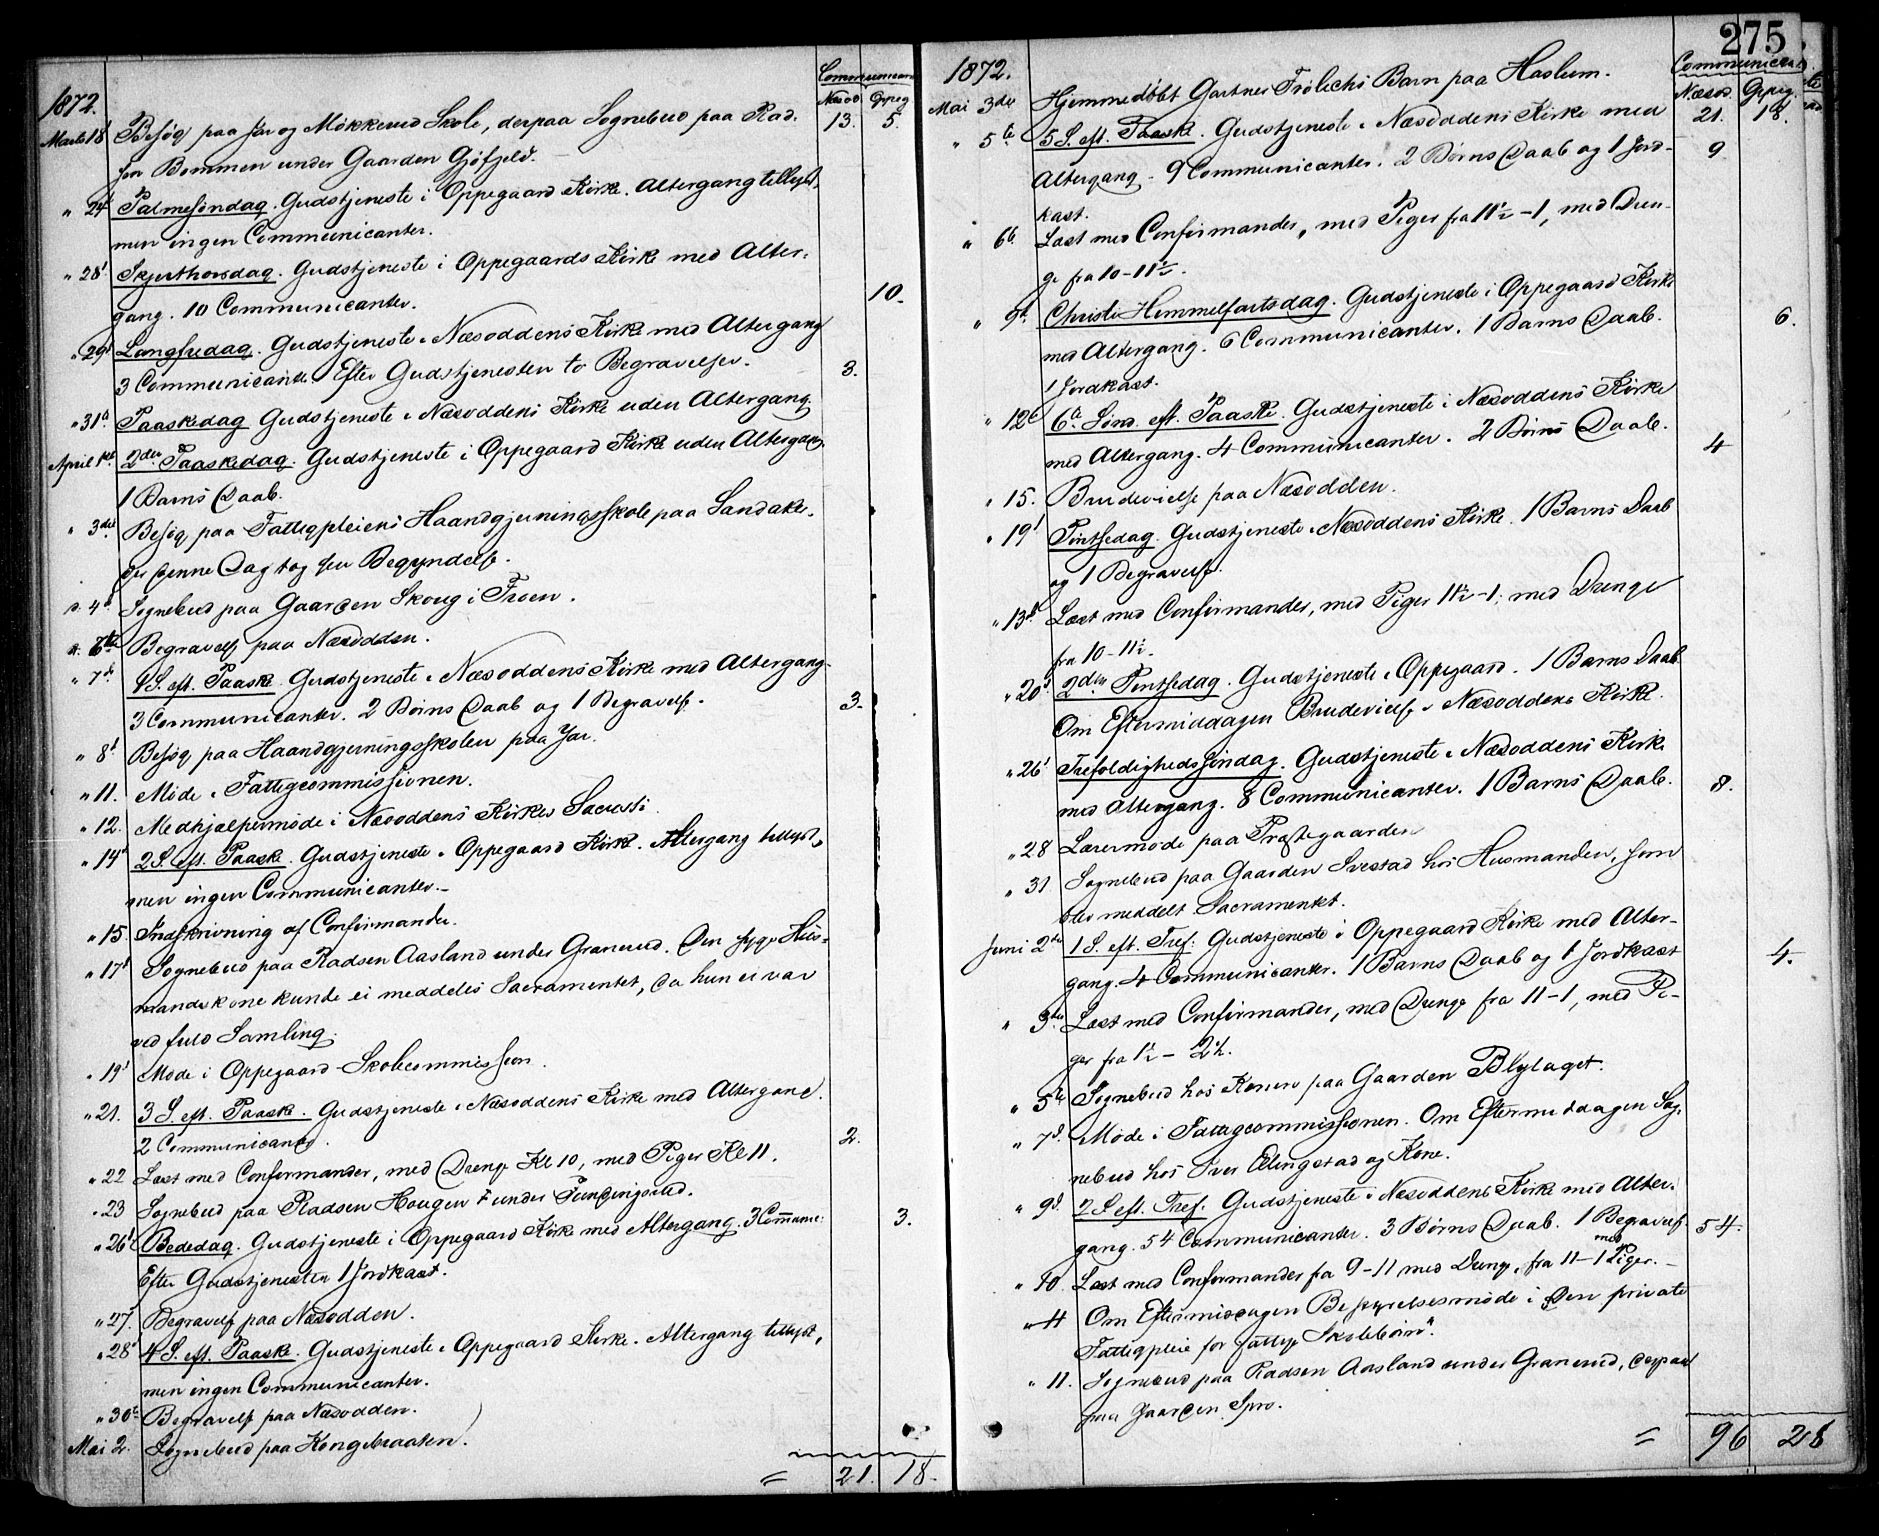 1872.
Communicant
Næsod. Oppeg
Marts 18' Besøg paa Jar og Mökkerud Skole, derpaa Sognebud paa Rad. 13. 5.
sen Bommen under Gaarden Gjøfjeld.
" 24' Palmesöndag. Gudstjeneste i Oppegaard Kirke. Altergang tillyst,
men ingen Communicanter.
" 28' Skjærthorsdag. Gudstjeneste i Oppegaards Kirke med Alter-
gang. 10 Communicanter. 10.
" 29' Langfredag. Gudstjeneste i Næsoddens Kirke med Altergang
3 Communicanter Efter Gudstjenesten to Begravelser. 3.
" 31te Paaskedag Gudstjeneste i Næsoddens Kirke uden Altergang
April 1ste 2den Paaskedag. Gudstjeneste i Oppegaard Kirke uden Altergang.
1 Barns Daab.
" 3die Besøg paa Fattigpleiens Haandgjerningsskole paa Sandaker,
der denne Dag tog sin Begyndelse.
" 4de Sognebud paa Gaarden Skoug i Froen.
" 6te Begravelse paa Næsodden.
" 7de 1 S. eft. Paaske. Gudstjeneste i Næsoddens Kirke med Altergang
3 Communicanter. 2 Børns Daab og 1 Begravelse. 3.
" 8' Besøg paa Haandgjerningsskolen paa Jar.
" 11. Möde i Fattigcommissionen.
" 12. Medhjælpermöde i Næsoddens Kirkes Sacristi
" 14' 2 S. eft. Paaske. Gudstjeneste i Oppegaard Kirke. Altergang tillyst,
men ingen Communicanter.-
" 15. Indskrivning af Confirmander.
" 17' Sognebud paa Radsen Aasland under Granerud. Den syge Hus-
mandskone kunde ei meddeles Sacramentet, da hun ei var
ved fuld Samling.
" 19' Möde i Oppegaard Skolecommission.
" 21. 3 S. eft. Paaske. Gudstjeneste i Næsoddens Kirke med Altergang.
2 Communicanter. 2.
" 22 Læst med Confirmander, med Drenge Kl 10, med Piger Kl 11.
" 23 Sognebud paa Radsen Hougen under Fundingsrud.
" 26' Bededag. Gudstjeneste i Oppegaard Kirke med Altergang. 3 Commun: 3.
Efter Gudstjenesten 1 Jordkast.
" 27. Begravelse paa Næsodden.
" 28' 4 S. eft. Paaske. Gudstjeneste i Oppegaard Kirke. Altergang tillyst,
men ingen Communicanter.
" 30te Begravelse paa Næsodden.
Mai 2. Sognebud paa Kongebraaten.
= 21. 18.
275
1872.
Communicant
Næsod. Oppeg.
21. 18.
Mai 3die Hjemmedöbt Gartner Frölichs Barn paa Haslum.
" 5te 5 S. eft. Paaske. Gudstjeneste i Næsoddens Kirke med
Altergang. 9 Communicanter. 2 Børns Daab og 1 Jord- 9
kast.
" 6te Læst med Confirmander, med Piger fra 11½-1, med Dren-
ge fra 10-11½.
" 9de Christi Himmelfartsdag. Gudstjeneste i Oppegaard Kirke
med Altergang. 6 Communicanter. 1 Barns Daab. 6.
1 Jordkast.
" 12te 6te Sønd. eft. Paaske. Gudstjeneste i Næsoddens Kirke
med Altergang. 4 Communicanter. 2 Børns Daab. 4
" 15. Brudevielse paa Næsodden.
" 19' Pintsedag. Gudstjeneste i Næsoddens Kirke. 1 Barns Daab
og 1 Begravelse.
" 13de Læst med Confirmander, med Piger 11½-1, med Drenge
fra 10-11½.
" 20' 2den Pintsedag. Gudstjeneste i Oppegaard. 1 Barns Daab.
Om Eftermiddagen Brudevielse i Næsoddens Kirke.
" 26' Trefoldighedssöndag. Gudstjeneste i Næsoddens Kirke
med Altergang. 8 Communicanter. 1 Barns Daab. 8.
" 28 Lærermöde paa Præstegaarden
" 31 Sognebud paa Gaarden Svestad hos Husmanden, som
blev meddelt Sacramentet.
Juni 2den 1 S. eft. Tref: Gudstjeneste i Oppegaard Kirke med Alter-
gang. 4 Communicanter. 1 Barns Daab og 1 Jordkast 4.
" 3die Læst med Confirmander, med Drenge fra 11-1, med Pi-
ger fra 1½ - 2½.
" 5te Sognebud hos Konen paa Gaarden Blylaget.
" 7de Möde i Fattigcommissionen. Om Eftermiddagen Sog-
nebud hos Iver Ellingstad og Kone.
" 9de 2 S eft. Tref. Gudstjeneste i Næsoddens Kirke med Alter-
gang. 54 Communicanter. 3 Børns Daab. 1 Begravelse. 54.
" 10 Læst med Confirmander fra 9-11 med Drenge, fra 11-1 med Piger.-
" 11 Om Eftermiddagen Bestyrelsesmöde i "Den private
Fattigpleie for fattige Skolebörn".
" 11. Sognebud paa Radsen Aasland under Granerud, derpaa
paa Gaarden Spro.
= 96 28